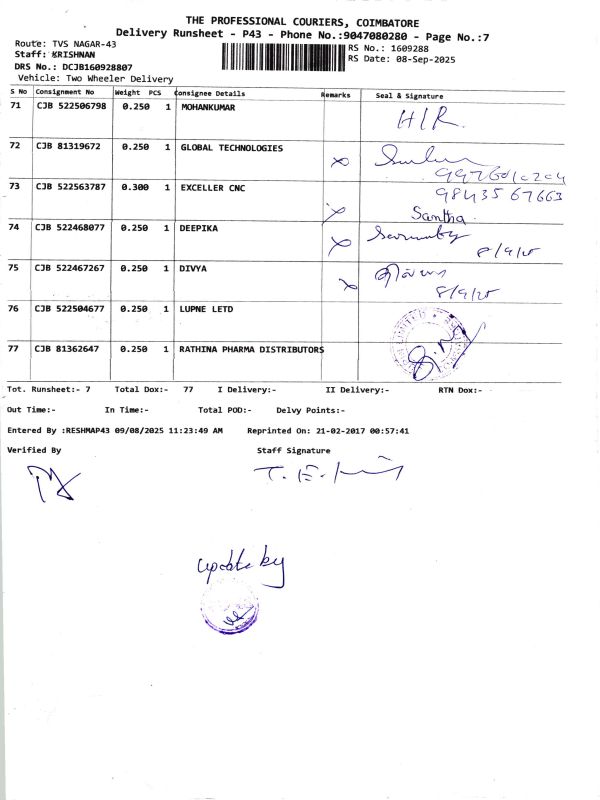 THE PROFESSIONAL COURIERS, COIMBATORE
Delivery Runsheet - P43 - Phone No.:9047080280 - Page No.:7
Route: TVS NAGAR-43
RS No.: 1609288
Staff: KRISHNAN
RS Date: 08-Sep-2025
DRS No.: DCJB160928807
Vehicle: Two Wheeler Delivery
S No Consignment No Weight PCS Consignee Details Remarks Seal & Signature
71 CJB 522506798 0.250 1 MOHANKUMAR H/R.
72 CJB 81319672 0.250 1 GLOBAL TECHNOLOGIES
73 CJB 522563787 0.300 1 EXCELLER CNC 98435 67663
Santha
74 CJB 522468077 0.250 1 DEEPIKA
8/9/25
75 CJB 522467267 0.250 1 DIVYA
8/9/25
76 CJB 522504677 0.250 1 LUPNE LETD
77 CJB 81362647 0.250 1 RATHINA PHARMA DISTRIBUTORS
Tot. Runsheet:- 7 Total Dox:- 77 I Delivery:- II Delivery:- RTN Dox:-
Out Time:- In Time:- Total POD:- Delvy Points:-
Entered By :RESHMAP43 09/08/2025 11:23:49 AM Reprinted On: 21-02-2017 00:57:41
Verified By Staff Signature
update by